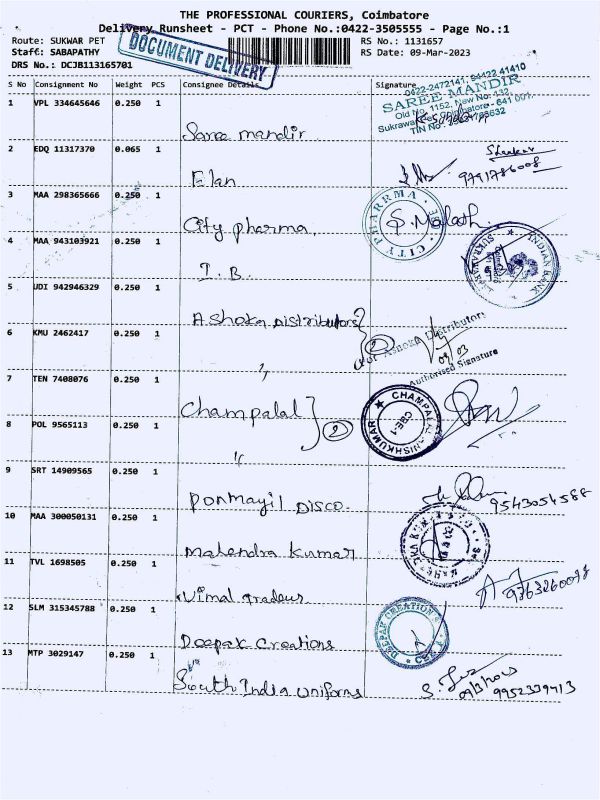 THE PROFESSIONAL COURIERS, Coimbatore
Delivery Runsheet - PCT - Phone No.:0422-3505555 - Page No.:1
Route: SUKWAR PET
RS No.: 1131657
Staff: SABAPATHY
RS Date: 09-Mar-2023
DRS No.: DCJB113165701
DOCUMENT DELIVERY
S No Consignment No Weight PCS Consignee Details Signature
0422-2472141, 94122 41410
SAREE MANDIR
Old No. 1152, New No. 432,
1 VPL 334645646 0.250 1
Saree mandir
2 EDQ 11317370 0.065 1
Elan
9791786008
3 MAA 298365666 0.250 1
City pharma
CITY PHARRMA
4 MAA 943103921 0.250 1
I.B.
INDIAN BANK
5 UDI 942946329 0.250 1
Ashoka Distributors
2
For Ashoka Distributors
09/03
Authorised Signature
6 KMU 2462417 0.250 1
"
7 TEN 7408076 0.250 1
Champalal
2
CHAMPALAL
CBE-1
8 POL 9565113 0.250 1
"
9 SRT 14909565 0.250 1
Ponmayil Disco
9543054588
10 MAA 300050131 0.250 1
Mahendra Kumar
11 TVL 1698505 0.250 1
Vimal Traders
12 SLM 315345788 0.250 1
Deepak Creations
DEEPAK CREATION
13 MTP 3029147 0.250 1
South India Uniforms
9952339413